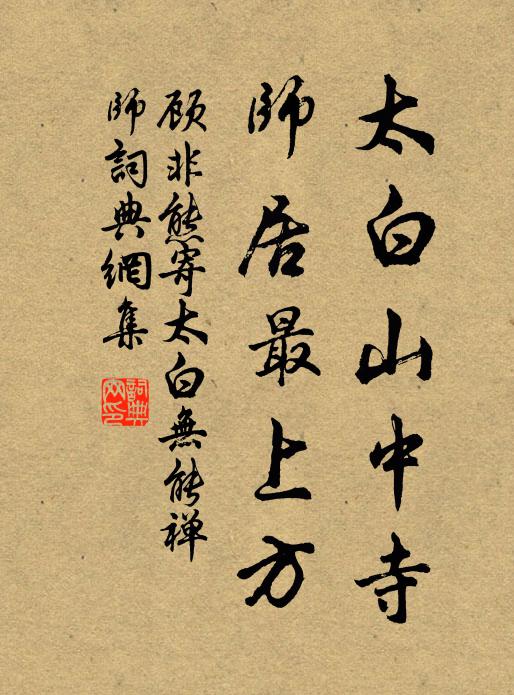 太白山中寺
師居最上方
顾非熊寄太白無能禅
師詞典網集
詞典
网印